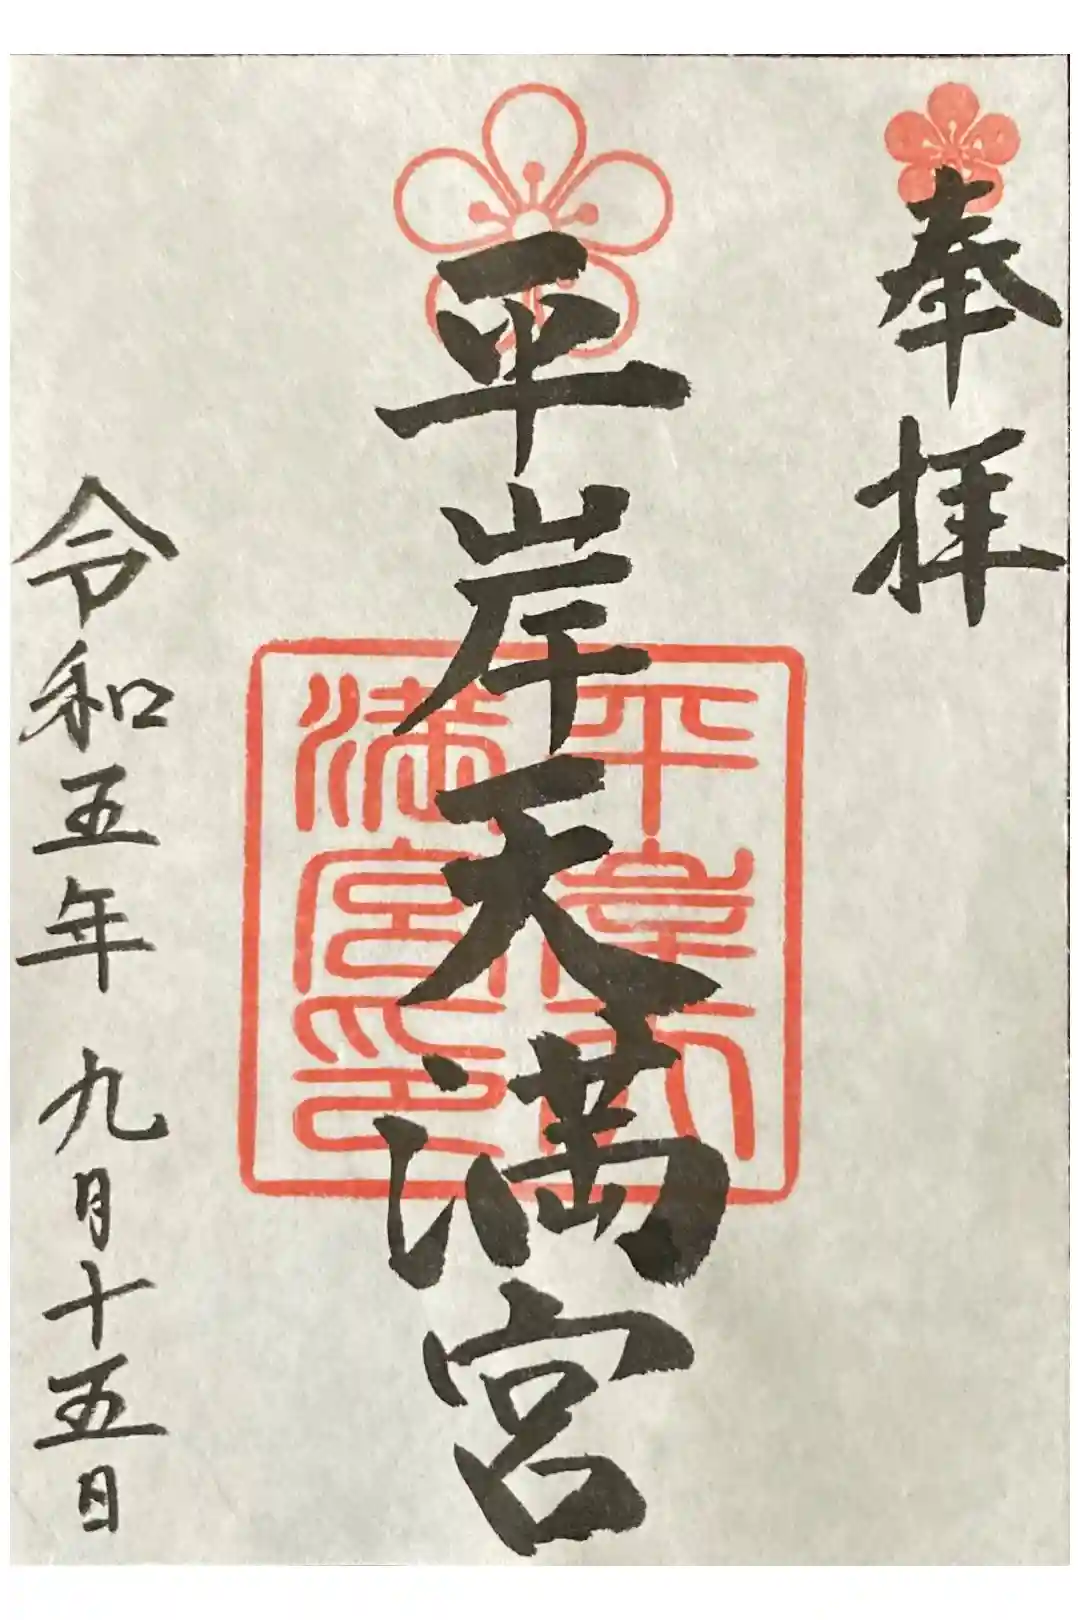 奉拝
平岸天満宮
平岸天
満宮印
令和五年九月十五日